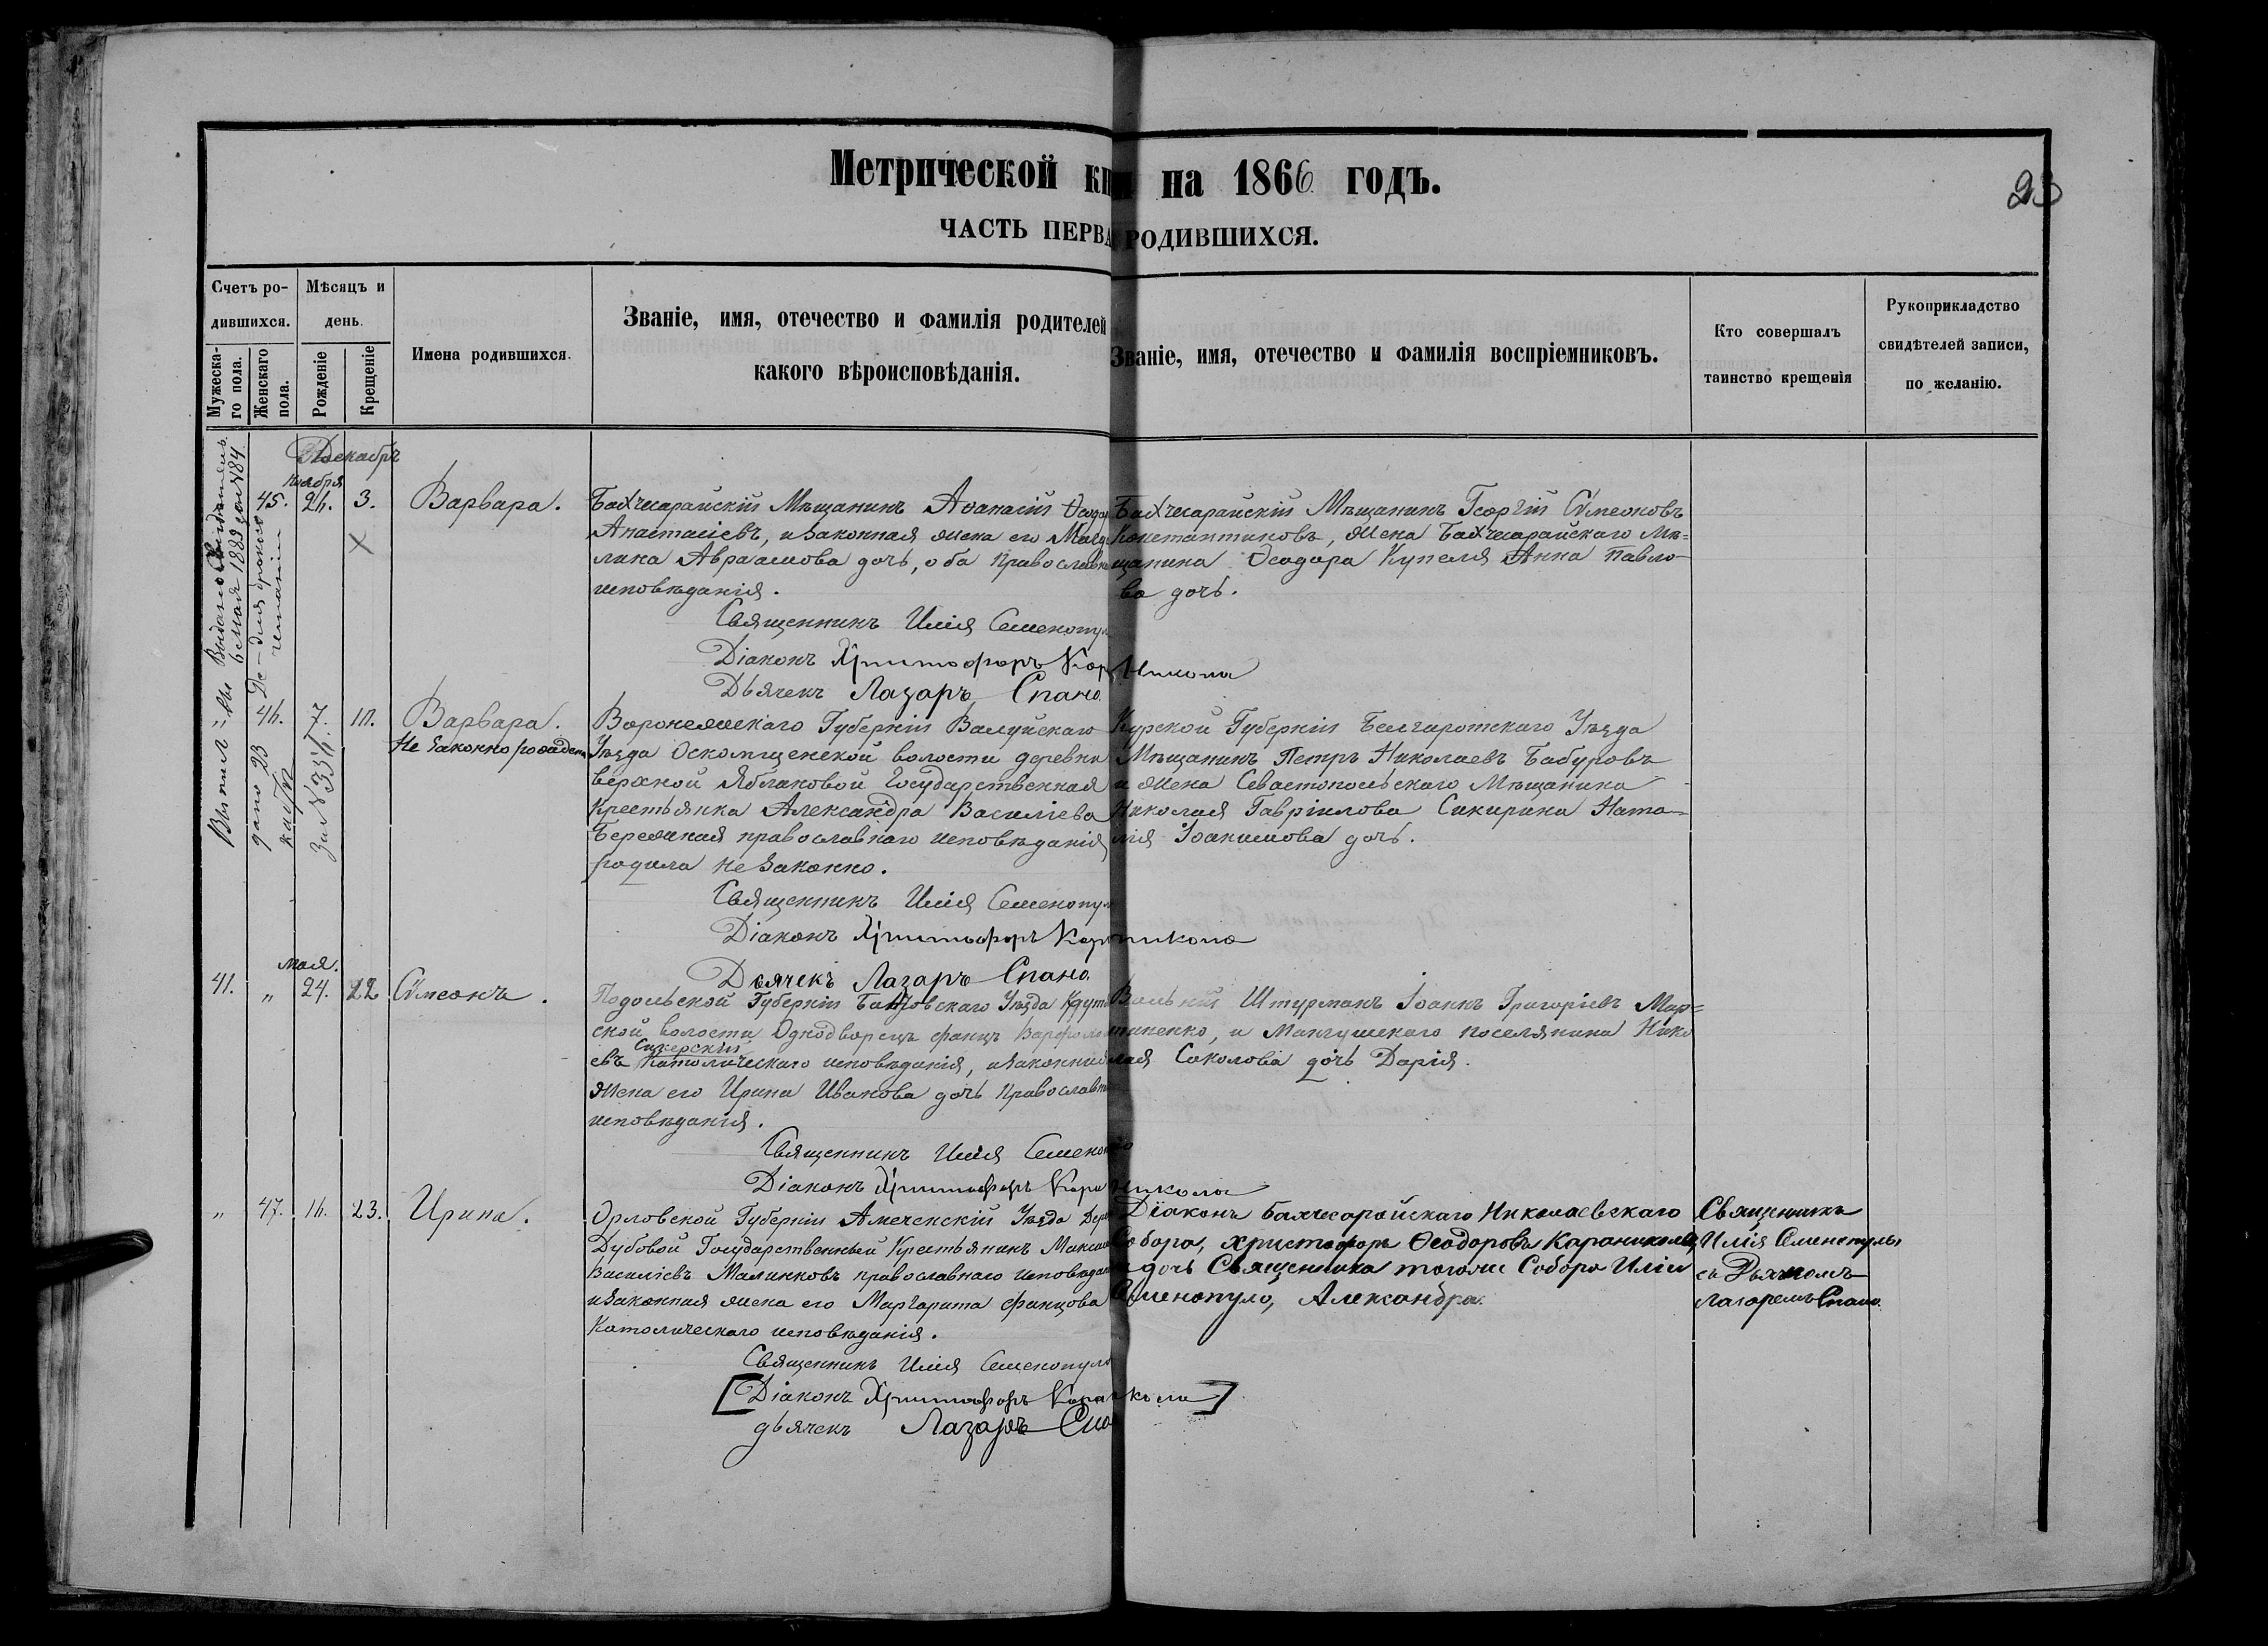 Метрической кни на 1866 годъ.
23
ЧАСТЬ ПЕРВА РОДИВШИХСЯ.
Счетъ ро-
дившихся.
Мужеска-
го пола.
Женскаго
пола.
Мѣсяцъ и
день.
Рожденіе
Крещеніе
Имена родившихся.
Званіе, имя, отечество и фамилія родителей
какого вѣроисповѣданія.
Званіе, имя, отечество и фамилія воспріемниковъ.
Кто совершалъ
таинство крещенія
Рукоприкладство
свидѣтелей записи,
по желанію.
Декабрь
Ноября
45. 24. 3. Варвара.
Бахчесарайскій Мѣщанинъ Аѳанасій Ѳеодор
Анастасіевъ, и законная жена его Магда
лина Авраамова дочь, оба православн
исповѣданія.
Священникъ Илія Семенопул
Діаконъ Христофоръ Кара Никола
Дьячекъ Лазаръ Спано.
Бахчесарайскій Мѣщанинъ Георгій Сѵмеоновъ
Константиновъ, жена Бахчесарайскаго Мѣ=
щанина Ѳеодора Купеля Анна Павло-
ва дочь.
46. 7. 10. Варвара.
Не законно рожден
Воронежскаго Губерніи Валуйскаго
Уѣзда Осколищенской волости деревни
верхной Яблоковой Государственная
Крестьянка Александра Василіева
Бережная православнаго исповѣданія
родила не законно.
Священникъ Илія Семенопул
Діаконъ Христофоръ Караникола
Дьячекъ Лазаръ Спано.
Курской Губерніи Белгаротскаго Уѣзда
Мѣщанинъ Петръ Николаевъ Бабуровъ
и жена Севастопольскаго Мѣщанина
Николая Гавріилова Сикирина Ната=
лія Іоакимова дочь.
Мая.
41. " 24. 22 Сѵмеонъ.
Подольской Губерніи Уѣзда
ской волости Однодворецъ Францъ Варфоломе
Сикерскій
евъ Католическаго исповѣданія, и законная
жена его Ирина Иванова дочь православн
исповѣданія.
Священникъ Илія Семенопуло
Діаконъ Христофоръ Кара Никола
Вольный Штурманъ Іоаннъ Григоріевъ Мар=
тиненко, и Мангушскаго поселянина Нико
лая Соколова дочь Дарія.
" 47. 16. 23. Ирина.
Орловской Губерніи Уѣзда Дере
Дубовой Государственный Крестьянинъ Максим
Василіевъ Малинковъ православнаго исповѣдан
и законная жена его Маргарита Францова
Католическаго исповѣданія.
Священникъ Илія Семенопуло
[Діаконъ Христофоръ Караникола]
дьячекъ Лазаръ Спа
Діаконъ Бахчесарайскаго Николаевскаго
Собора, Христофоръ Ѳеодоровъ Караникола,
и дочь Священника того же Собора Иліи
Семенопуло, Александра.
Священникъ
Илія Семенопулъ
съ Дьячкомъ
Лазаремъ Спано.